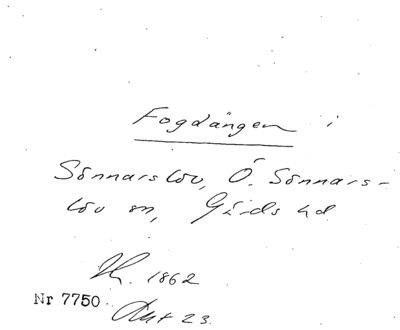 Fogdängen i
Sönnarslöv, Ö. Sönnars-
löv sn, Gärds hd
1862
Nr 7750
Akt 23.